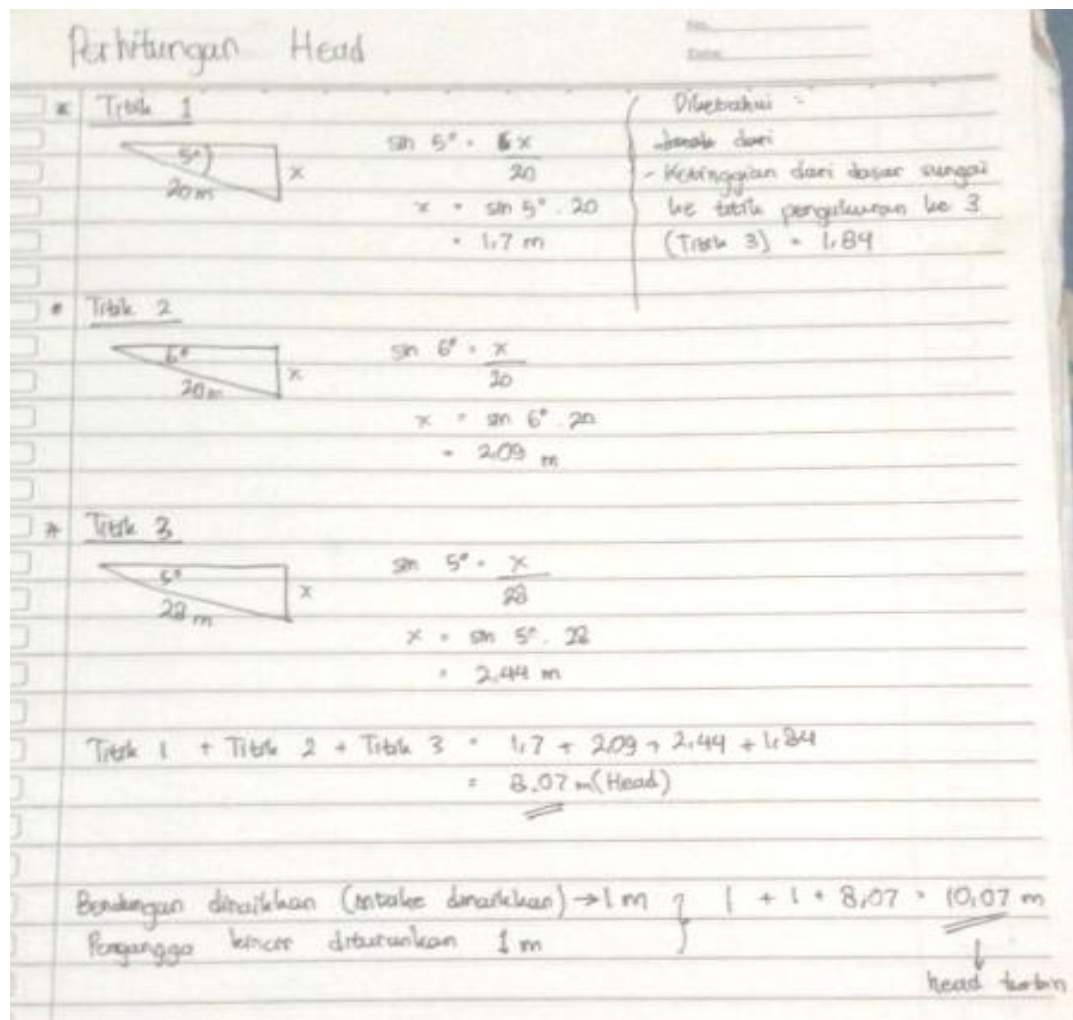 Perhitungan Head
No.
Date
* Titik 1
5°
20 m
x
sin 5° = x
20
x = sin 5° . 20
= 1,7 m
Diketahui :
- Ketinggian dari dasar sungai
ke titik pengukuran ke 3
(Titik 3) = 1,84
• Titik 2
6°
20 m
x
sin 6° = x
20
x = sin 6° . 20
= 2,09 m
* Titik 3
5°
28 m
x
sin 5° = x
28
x = sin 5° . 28
= 2,44 m
Titik 1 + Titik 2 + Titik 3 = 1,7 + 2,09 + 2,44 + 1,84
= 8,07 m (Head)
Bendungan dinaikkan (intake dinaikkan) → 1 m } 1 + 1 + 8,07 = 10,07 m
kincir diturunkan 1 m
↓
head turbin